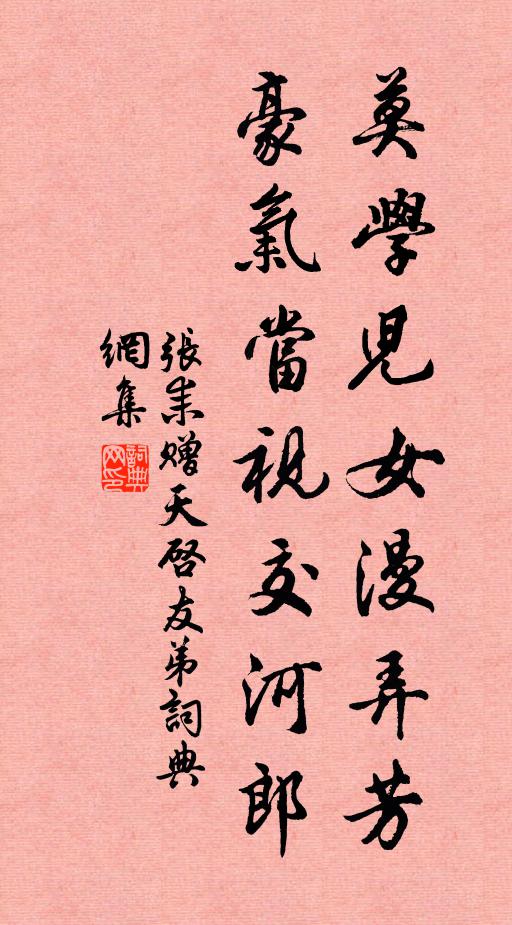 莫學兒女漫弄芳
豪氣當視交河郎
張耒贈天啓友弟詞典
網集
詞典
网印